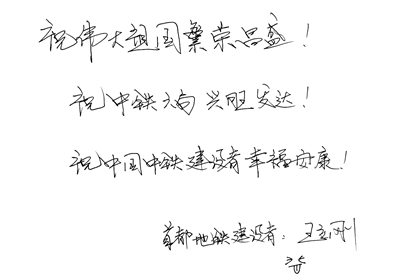 祝伟大祖国繁荣昌盛！
祝中铁六局兴旺发达！
祝中国中铁建设者幸福安康！
首都地铁建设者：王立刚